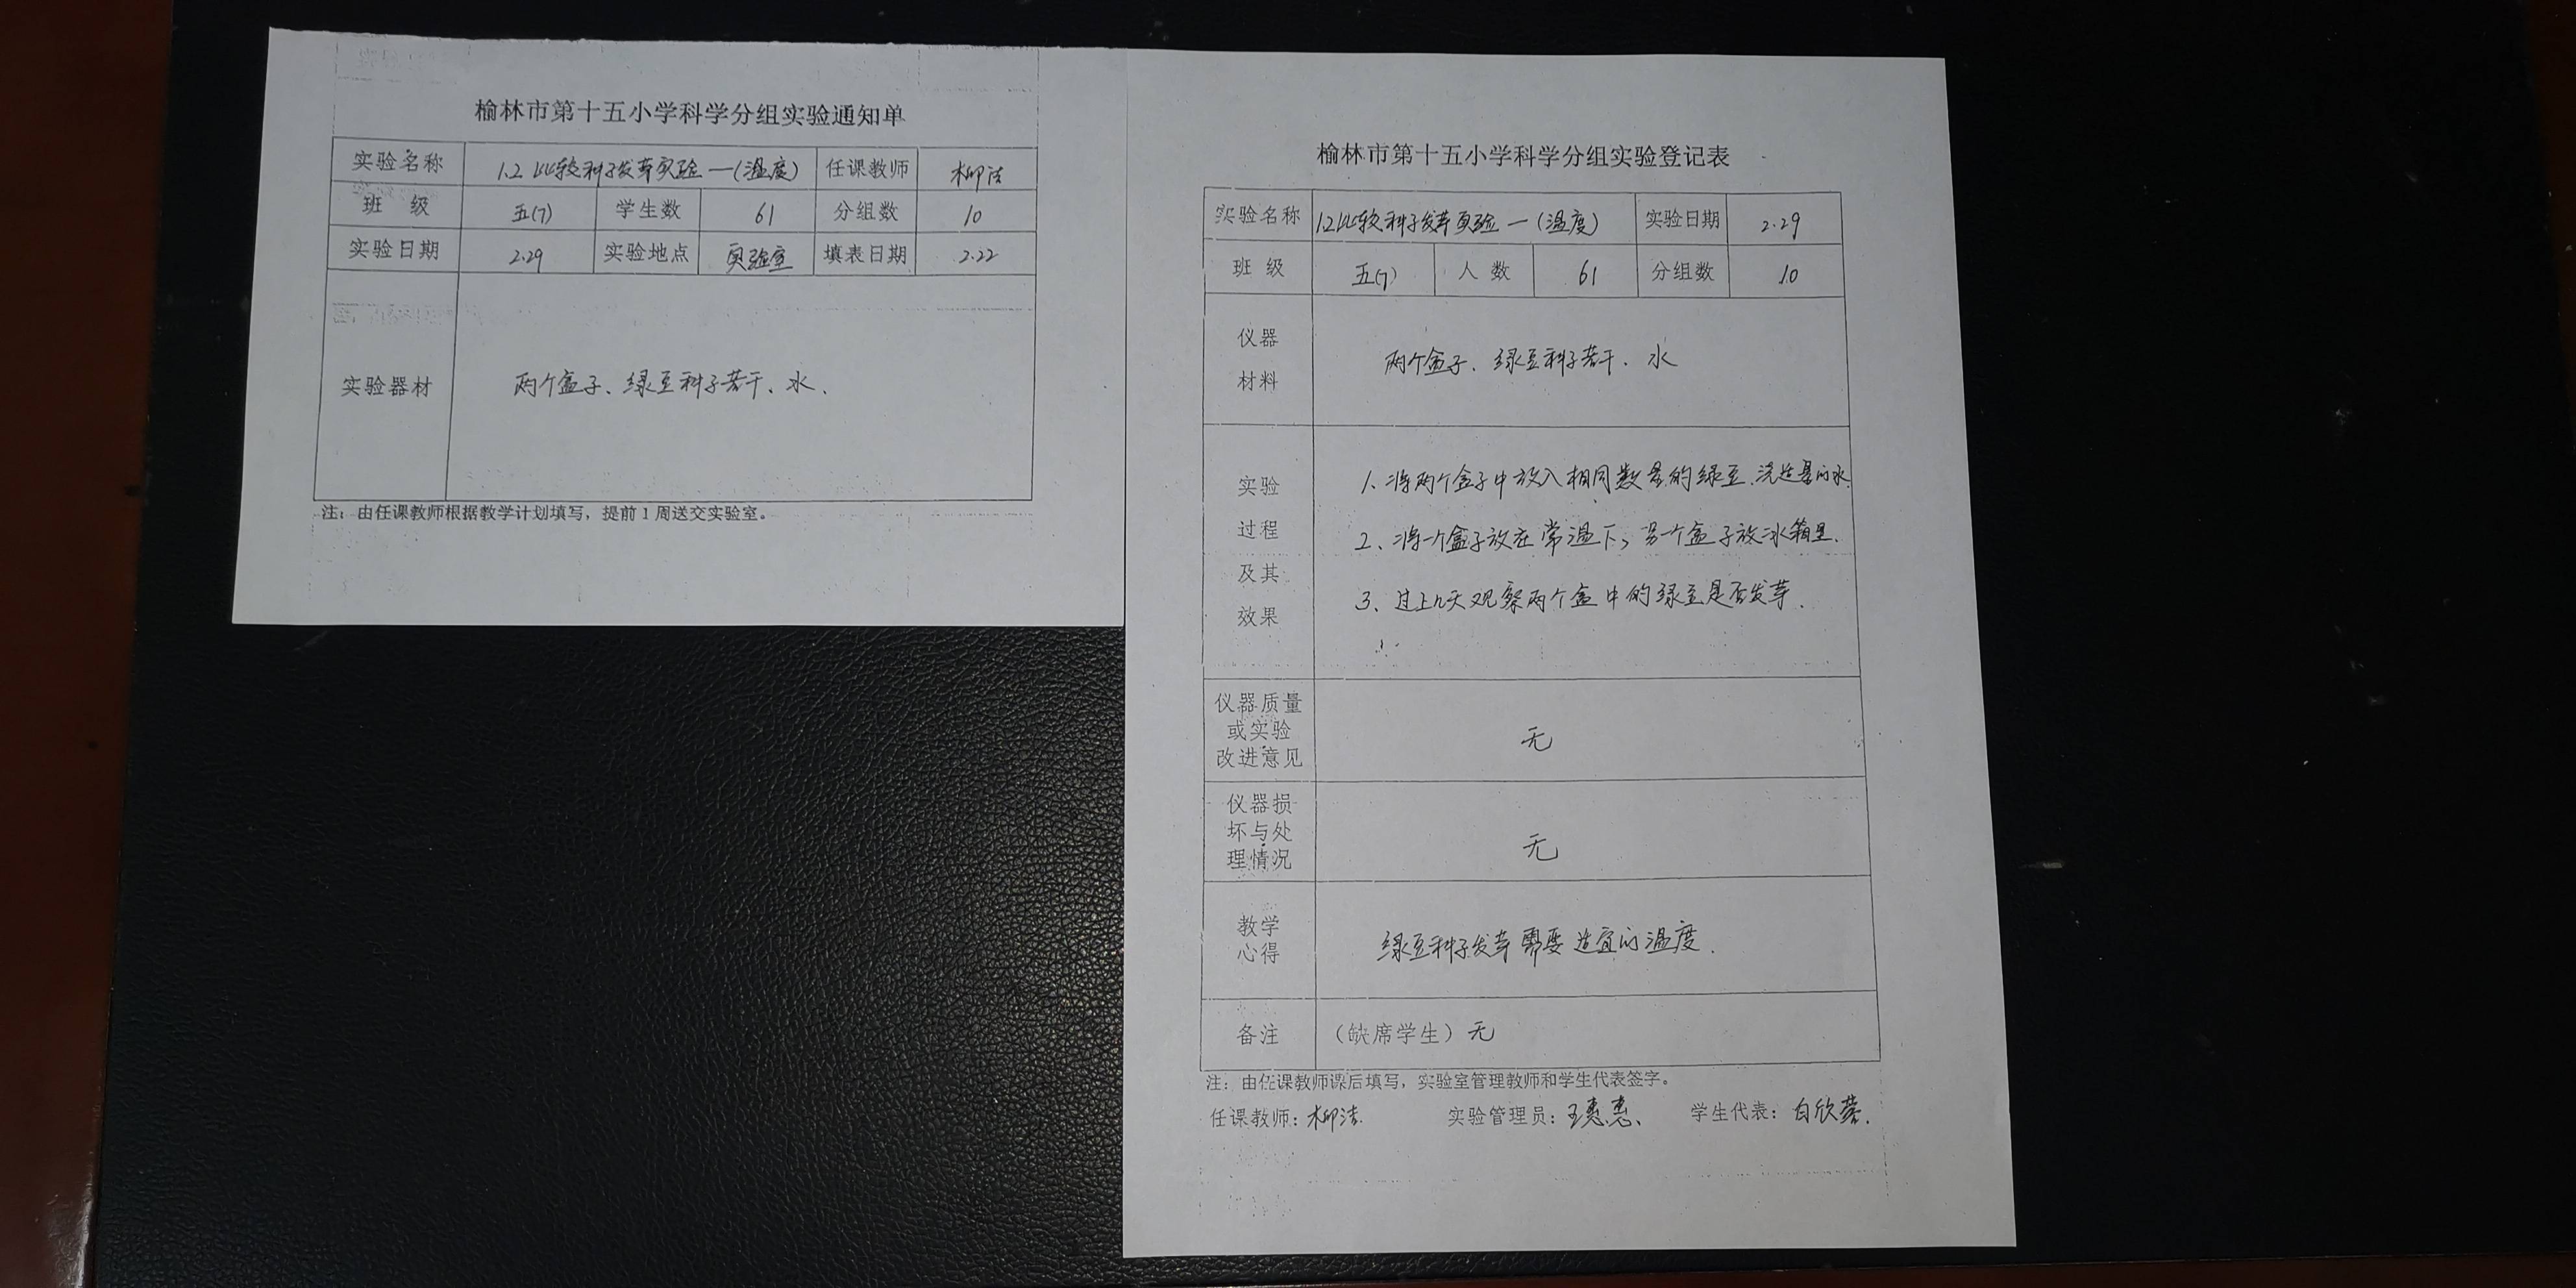 榆林市第十五小学科学分组实验通知单
实验名称 1.2 比较种子发芽实验一(温度) 任课教师 柳洁
班 级 五(7) 学生数 61 分组数 10
实验日期 2.29 实验地点 实验室 填表日期 2.22
实验器材 两个盒子、绿豆种子若干、水、
注：由任课教师根据教学计划填写，提前1周送交实验室。
榆林市第十五小学科学分组实验登记表
实验名称 1.2比较种子发芽实验一(温度) 实验日期 2.29
班 级 五(7) 人 数 61 分组数 10
仪器
材料
两个盒子、绿豆种子若干、水
实验
过程
及其
效果
1、将两个盒子中放入相同数量的绿豆.浇适量的水.
2、将一个盒子放在常温下,另一个盒子放冰箱里.
3、过上几天观察两个盒中的绿豆是否发芽.
仪器质量
或实验
改进意见
无
仪器损
坏与处
理情况
无
教学
心得
绿豆种子发芽需要适宜的温度.
备注 （缺席学生）无
注：由任课教师课后填写，实验室管理教师和学生代表签字。
任课教师：柳洁. 实验管理员：王惠惠、 学生代表：白欣蓉.